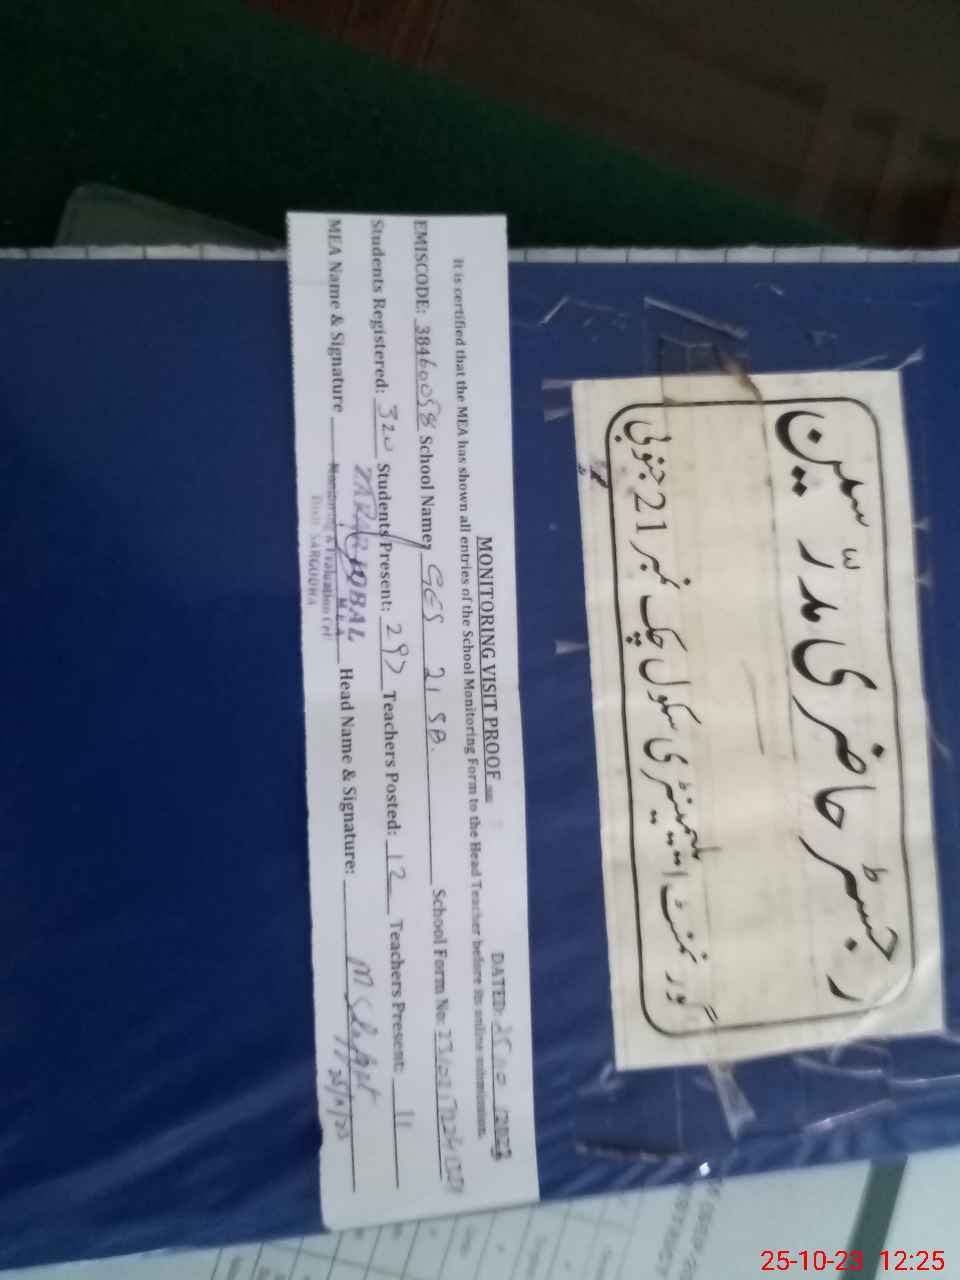 رجسٹر حاضری مدرّسین
گورنمنٹ ایلیمینٹری سکول چک نمبر 21 جنوبی
MONITORING VISIT PROOF
DATED: 25/10/2023
It is certified that the MEA has shown all entries of the School Monitoring Form to the Head Teacher before its online submission.
EMISCODE: 38460058 School Name: GES 21 SB. School Form No:
Students Registered: 320 Students Present: 297 Teachers Posted: 12 Teachers Present: 11
MEA Name & Signature IQBAL Head Name & Signature:
M.E.A
Monitoring & Evaluation Cell
Distt. SARGODHA
25/10/23
25-10-23 12:25